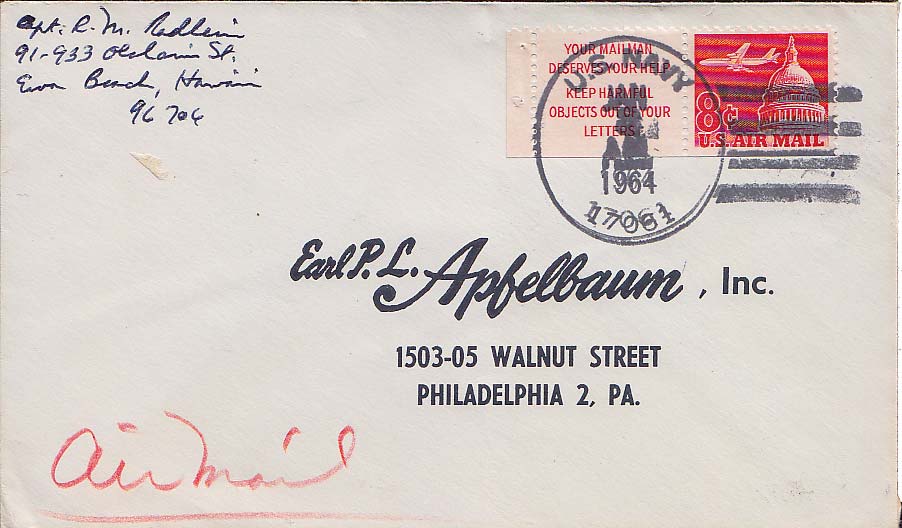 Capt. R. M. Redlein
91-933 St.
Ewa Beach, Hawaii
96706
YOUR MAILMAN
DESERVES YOUR HELP
KEEP HARMFUL
OBJECTS OUT OF YOUR
LETTERS
8¢
U.S. AIR MAIL
U.S. NAVY
1964
17061
Earl P. L. Apfelbaum, Inc.
1503-05 WALNUT STREET
PHILADELPHIA 2, PA.
Air Mail